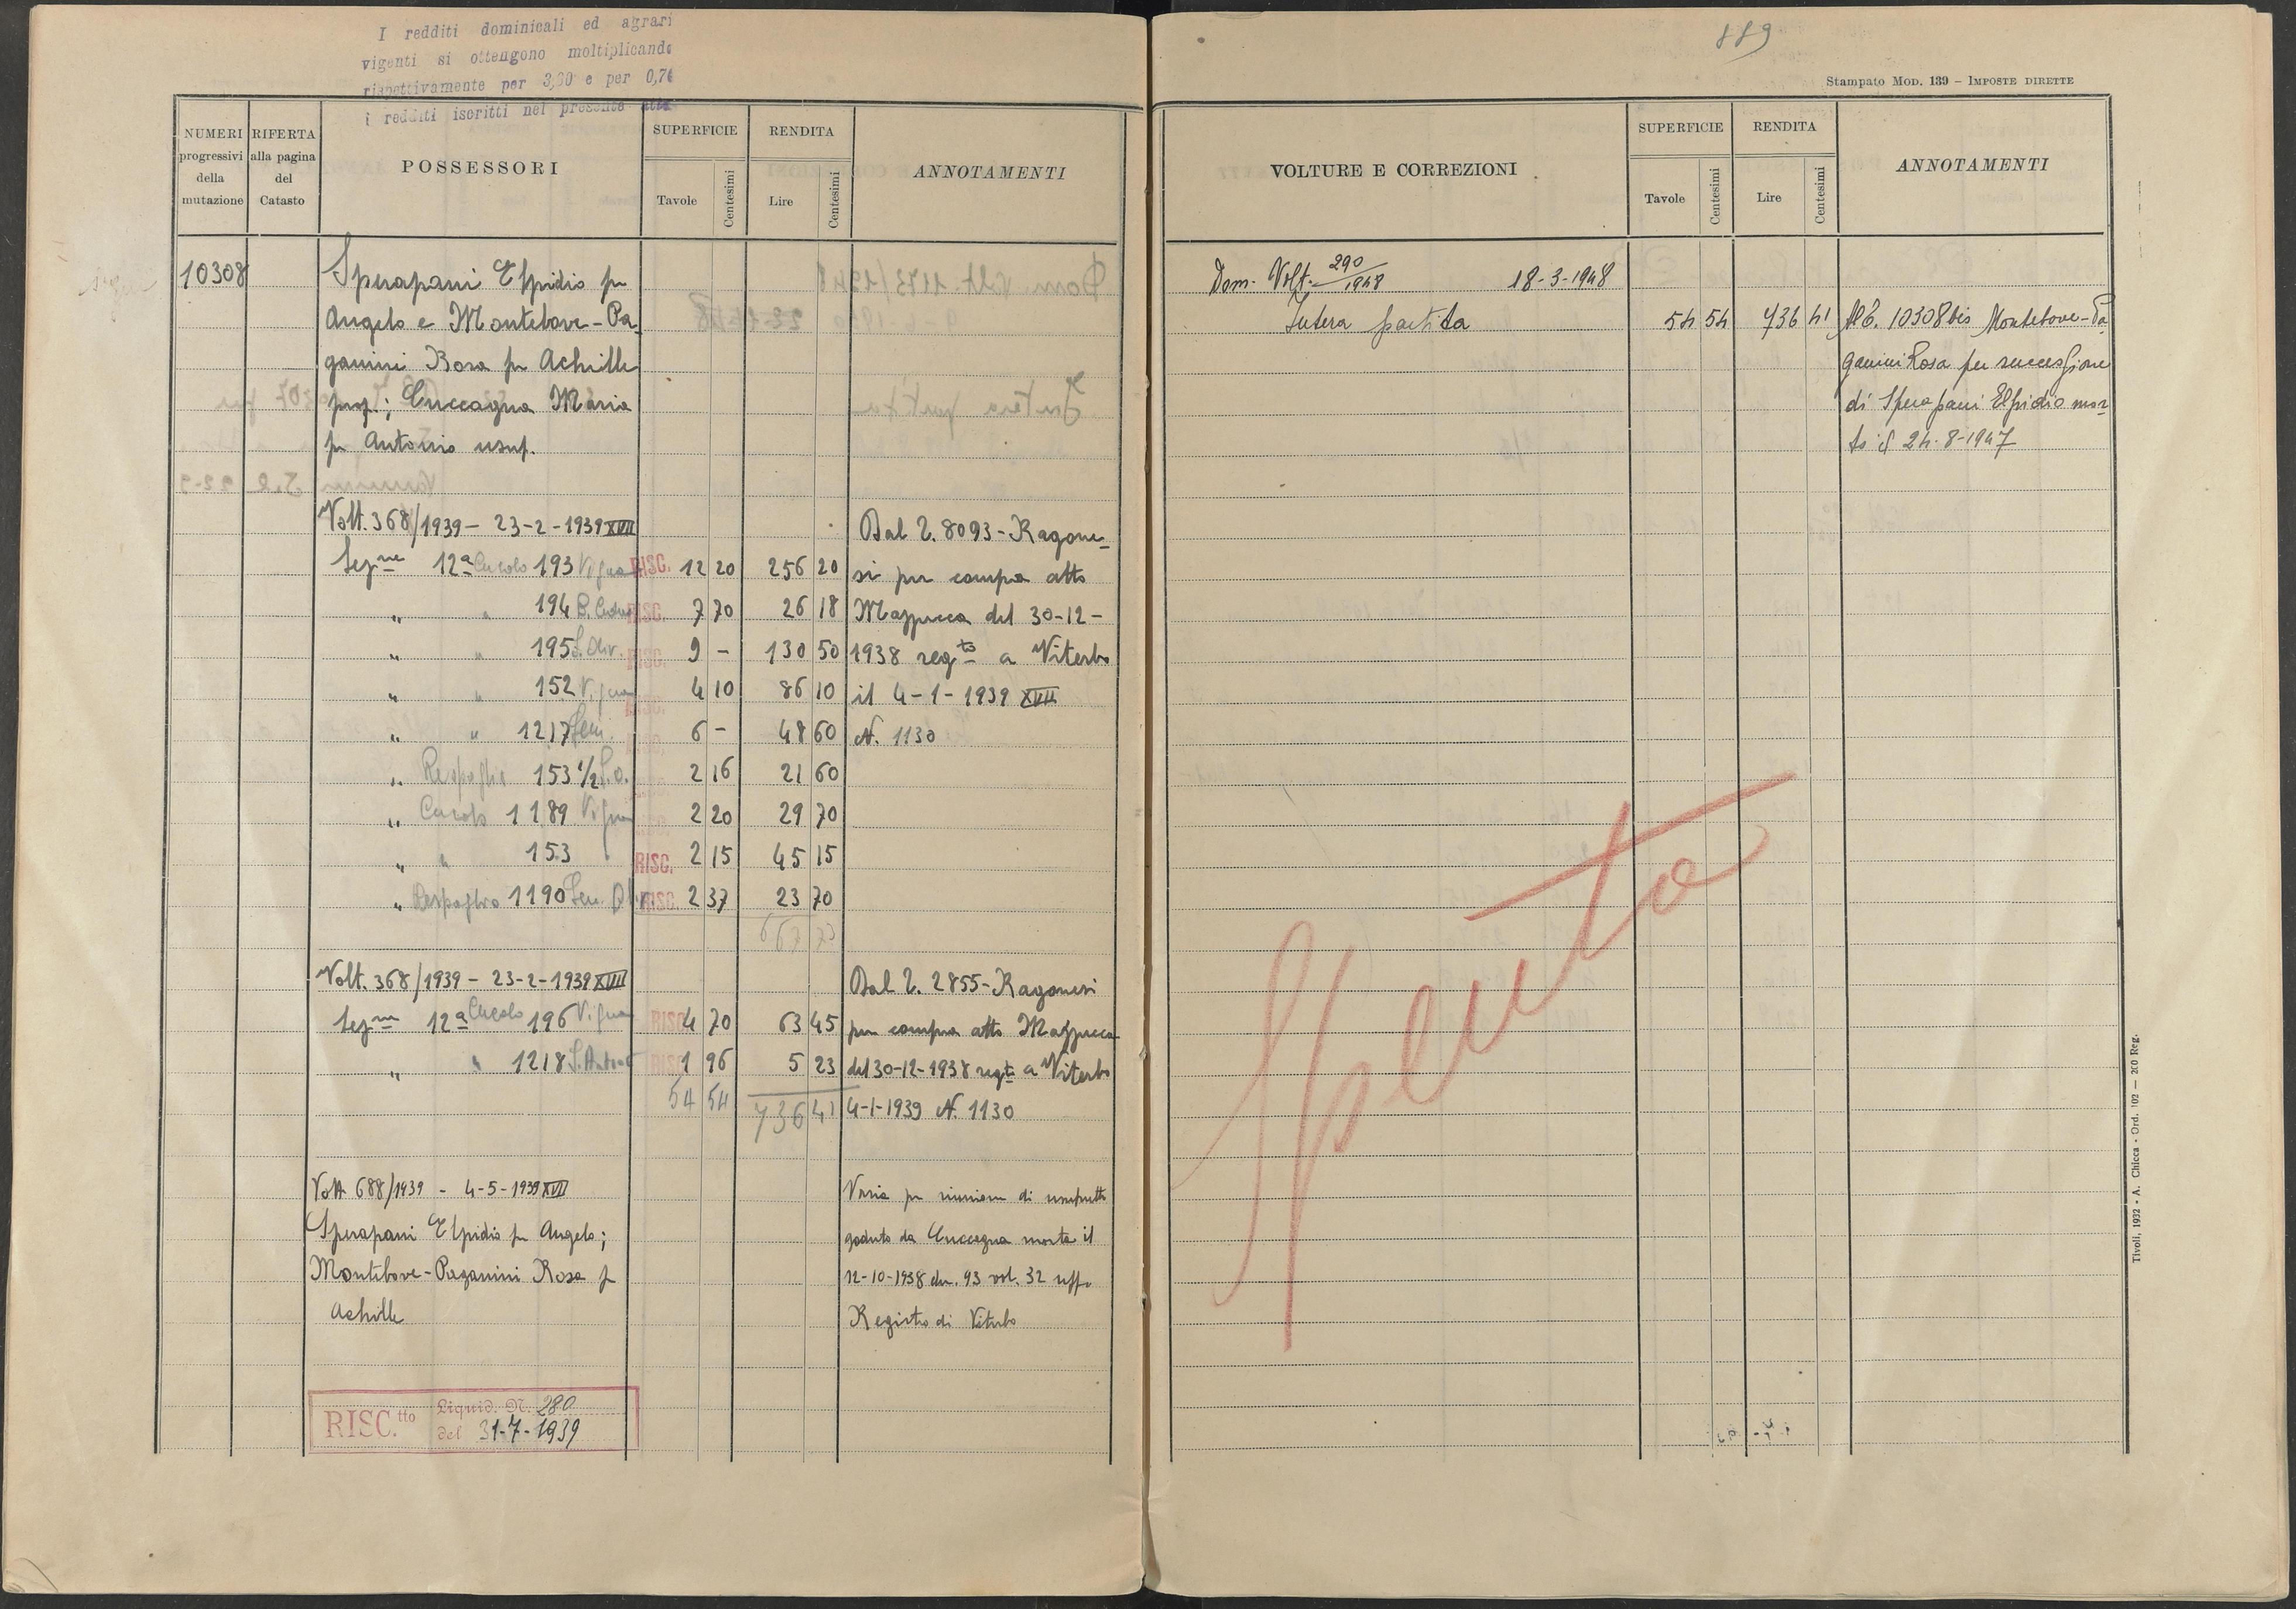 I redditi dominicali ed agrari
vigenti si ottengono moltiplicando
rispettivamente per 3,30 e per 0,74
i redditi iscritti nel presente atto
NUMERI progressivi della mutazione
RIFERTA alla pagina del Catasto
POSSESSORI
SUPERFICIE
Tavole
Centesimi
RENDITA
Lire
Centesimi
ANNOTAMENTI
10308
Sperapani Elpidio fu
Angelo e Montebove-Pa
ganini Rosa fu Achille
prop.; Cuccagna Maria
fu Antonio usuf.
Volt. 368/1939 - 23-2-1939 XVII
Dal T. 8093 - Ragone-
Sez.ne 12ª Cucolo 193 Vigna RISC. 12 20 256 20 si per compra atto
" " 194 RISC. 7 70 26 18 Mazzucca del 30-12-
" " 195 RISC. 9 - 130 50 1938 reg.to a Viterbo
" " 152 Vigna RISC. 4 10 86 10 il 4-1-1939 XVII
" " 1217 Sem. 6 - 48 60 N. 1130
" Respoglio 153 1/2 S.O. 2 16 21 60
" Cucolo 1189 Vigna 2 20 29 70
" " 153 RISC. 2 15 45 15
" Respoglio 1190 Sem. RISC. 2 37 23 70
667 73
Volt. 368/1939 - 23-2-1939 XVII
Dal T. 2855 - Ragonesi
Sez.ne 12ª Cucolo 196 Vigna RISC. 4 70 63 45 per compra atto Mazzucca
" " 1218 RISC. 1 96 5 23 del 30-12-1938 reg.to a Viterbo
54 54 736 41 4-1-1939 N. 1130
Volt 688/1939 - 4-5-1939 XVII
Sperapani Elpidio fu Angelo;
Montebove-Paganini Rosa fu
Achille
Varia per riunione di usufrutto
goduto da Cuccagna morta il
12-10-1938 den. 93 vol. 32 uff.
Registro di Viterbo
RISC.tto Liquid. N. 280
del 31-7-1939
119
Stampato MOD. 139 - IMPOSTE DIRETTE
VOLTURE E CORREZIONI
SUPERFICIE
Tavole
Centesimi
RENDITA
Lire
Centesimi
ANNOTAMENTI
Dom. Volt. 290/1948 18-3-1948
Intera partita 54 54 736 41 Al T. 10308 bis Montebove-Pa
ganini Rosa per successione
di Sperapani Elpidio mor
to il 24-8-1947
Spento
Tivoli, 1932 - A. Chicca - Ord. 102 - 200 Reg.